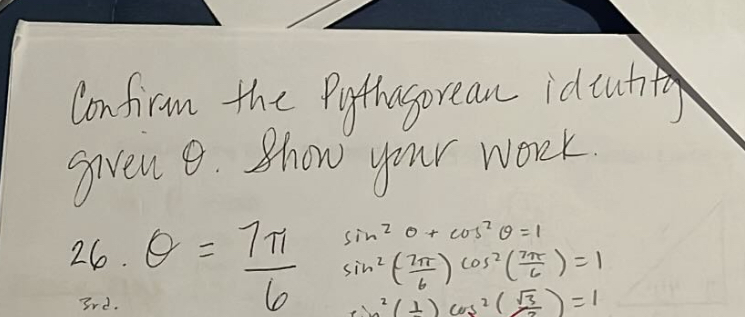 Confirm the Pythagorean identity
given θ. Show your work.
26. θ = 7π/6
sin² θ + cos² θ = 1
sin² (7π/6) cos² (7π/6) = 1
3rd.
cos² (√3/2) = 1